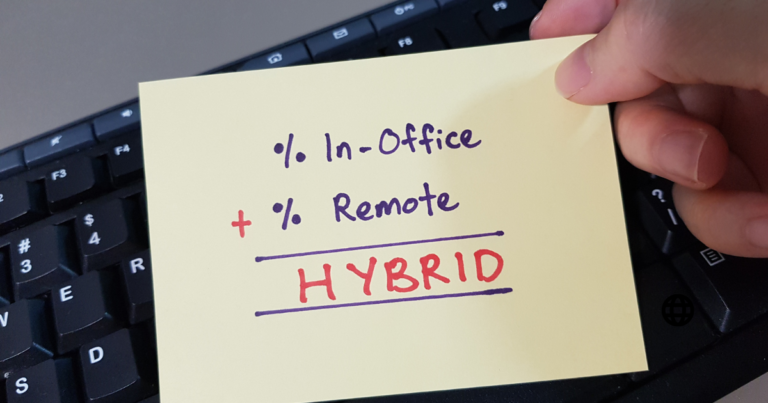 % In-Office
+ % Remote
HYBRID
F8
F9
F3
F4
# 3
$ 4
E
R
W
S
D
?